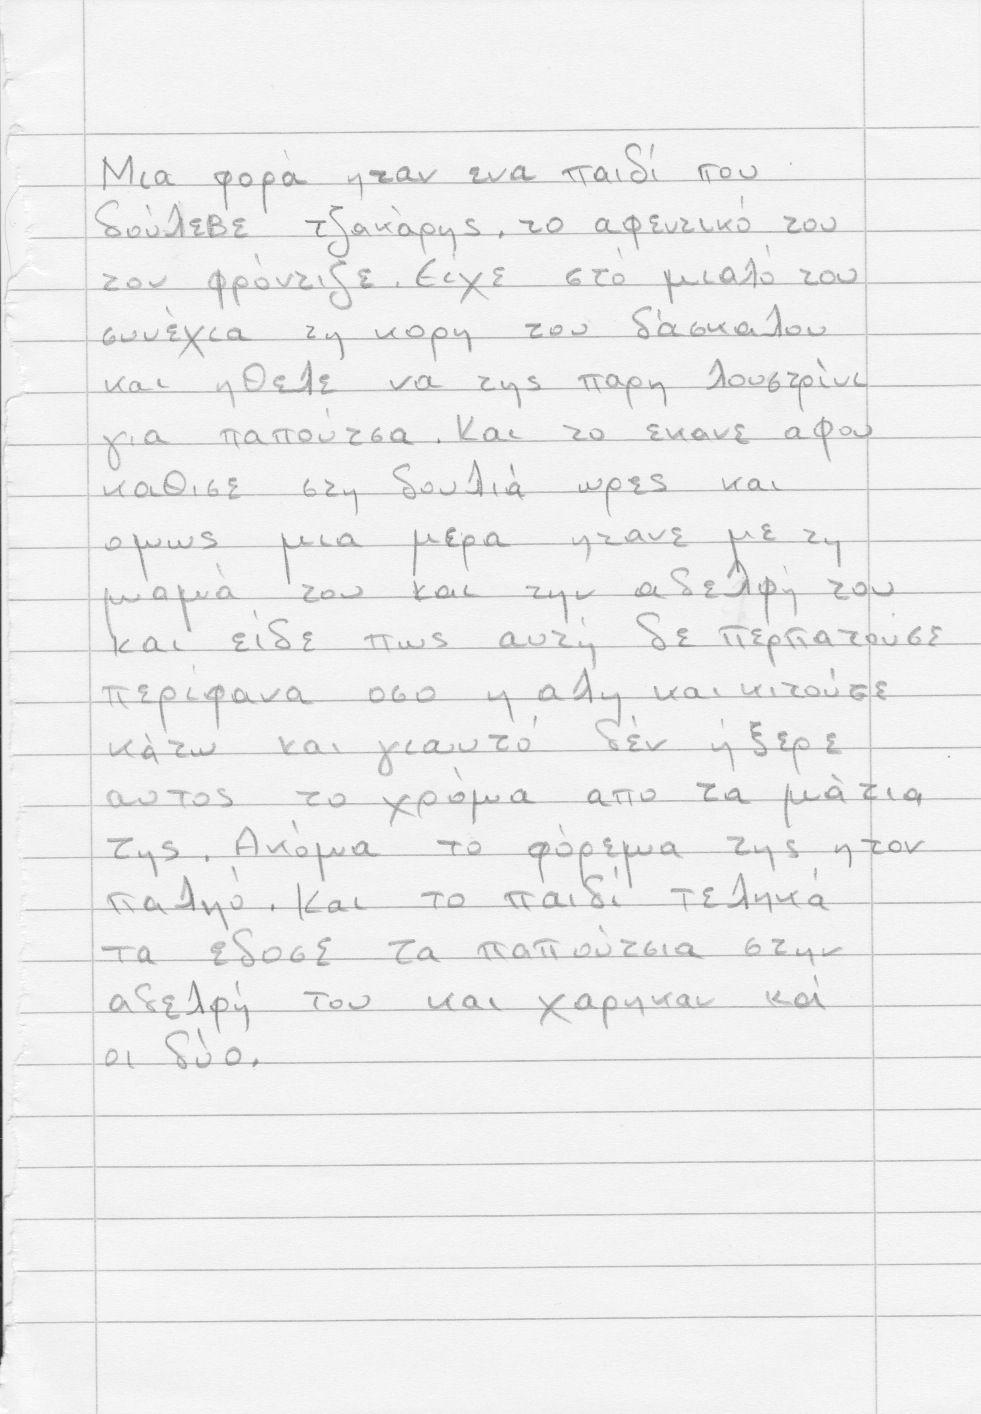 Μια φορά ηταν ενα παιδί που
δούλεβε τζακάρης. το αφεντικό του
τον φρόντιζε. Είχε στό μιαλό του
συνέχια τη κορη του δάσκαλου
και ηθελε να της παρη λουστρίνι
για παπούτσα. Και το εκανε αφου
καθισε στη δουλιά ωρες και
ομως μια μερα ητανε με τη
μαμά του και την αδελφή του
και είδε πως αυτή δε περπατούσε
περίφανα οσο η αλη και κιτούσε
κάτω και γιαυτό δέν ήξερε
αυτος το χρόμα απο τα μάτια
της. Ακόμα το φόρεμα της ητον
παληό. Και το παιδί τεληκά
τα εδοσε τα παπούτσια στην
αδελφή του και χαρηκαν καί
οι δύο.